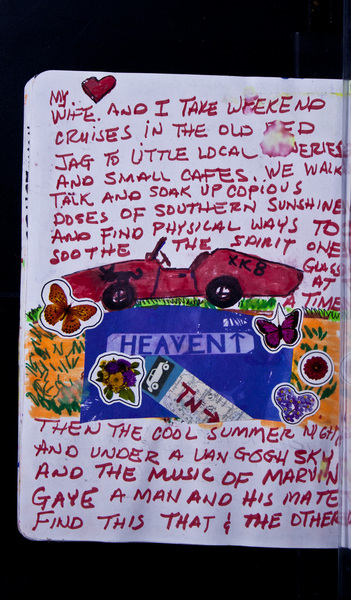 MY
WIFE. AND I TAKE WEEKEND
CRUISES IN THE OLD RED
JAG TO LITTLE LOCAL
AND SMALL CAFES.. WE WALK
TALK AND SOAK UP COPIOUS
DOSES OF SOUTHERN SUNSHINE
AND FIND PHYSICAL WAYS TO
SOOTHE THE SPIRIT ONE
GLASS
AT
A TIME
XK8
HEAVENT
TN
THEN THE COOL SUMMER NIGHT
AND UNDER A VAN GOGH SKY
AND THE MUSIC OF MARVIN
GAYE A MAN AND HIS MATE
FIND THIS THAT & THE OTHER